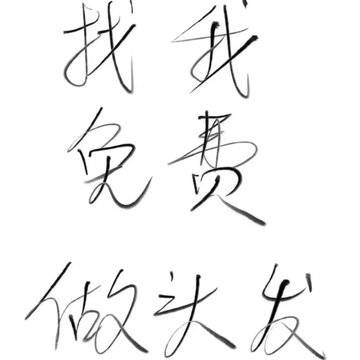 找我
免费
做头发